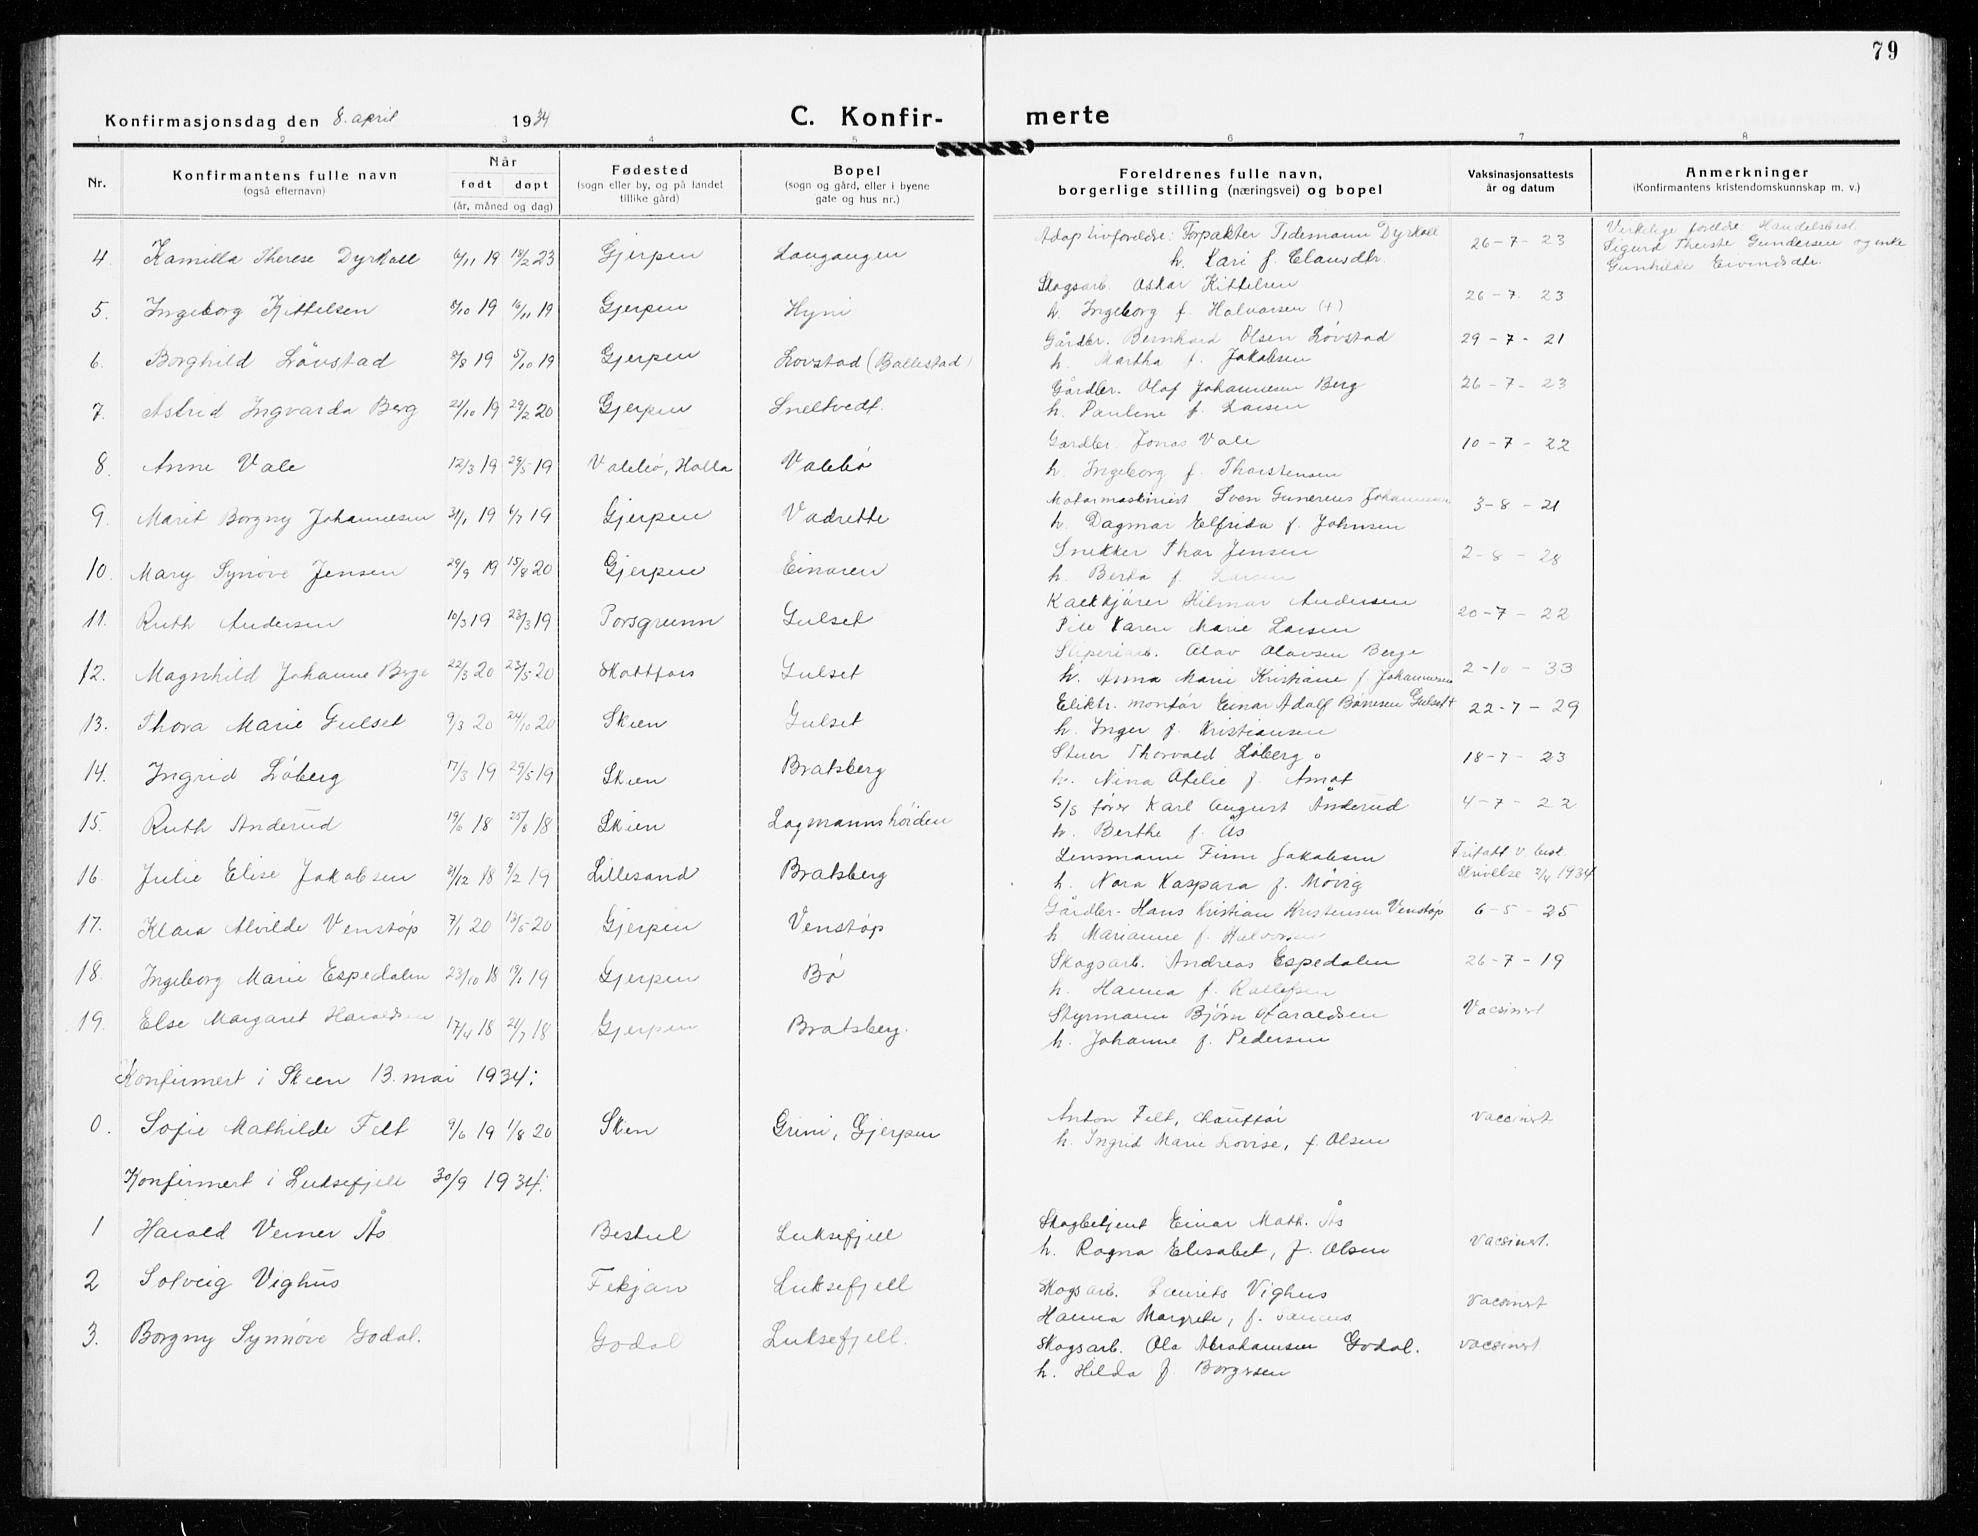 79
Konfirmasjonsdag den 8. april 1934 C. Konfir- merte
1 2 3 4 5 6 7 8
Nr. Konfirmantens fulle navn (også efternavn) Når født døpt (år, måned og dag) Fødested (sogn eller by, og på landet tillike gård) Bopel (sogn og gård, eller i byene gate og hus nr.) Foreldrenes fulle navn, borgerlige stilling (næringsvei) og bopel Vaksinasjonsattests år og datum Anmerkninger (Konfirmantens kristendomskunnskap m. v.)
4. Kamilla Therese Dyrkoll 6/11 19 18/2 23 Gjerpen Langangen Adoptivforeldre: Forpakter Tidemann Dyrkoll 26-7-23 Virkelige foreldre Handelsbest.
h. Kari f. Clausdtr. Sigurd Gundersen og enke
Gunhilde Eivindsdtr.
5. Ingeborg Kittelsen 8/10 19 16/11 19 Gjerpen Hyni Skogsarb. Oskar Kittelsen 26-7-23
h. Ingeborg f. Halvorsen (+)
6. Borghild Løvstad 8/8 19 5/10 19 Gjerpen Lovstad (Ballestad) Gårdbr. Bernhard Olsen Løvstad 29-7-21
h. Martha f. Jakobsen
7. Astrid Ingvarda Berg 21/10 19 29/2 20 Gjerpen Sneltvedt. Gårdbr. Olaf Johannesen Berg 26-7-23
h. Pauline f. Larsen
8. Anne Vale 12/3 19 29/5 19 Valebø, Holla Valebø Gårdbr. Jonas Vale 10-7-22
h. Ingeborg f. Thorstensen
9. Marit Borgny Johannesen 31/1 19 6/7 19 Gjerpen Vadrette Motormaskinist Sven Gunerius Johannesen 3-8-21
h. Dagmar Elfrida f. Johnsen
10. Mary Synøve Jensen 29/9 19 15/8 20 Gjerpen Einaren Snekker Thor Jensen 2-8-28
h. Berta f. Larsen
11. Ruth Andersen 10/3 19 23/3 19 Porsgrunn Gulset Kalkkjører Hilmar Andersen 20-7-22
Pike Karen Marie Larsen
12. Magnhild Johanne Berge 22/3 20 23/5 20 Skotfoss Gulset Sliperiarb. Olav Olavsen Berge 2-10-33
h. Anna Marie Kristiane f. Johannesen
13. Thora Marie Gulset 9/3 20 24/10 20 Skien Gulset Elektr. montør Einar Adolf Bønesen Gulset + 22-7-29
h. Inger f. Kristiansen
14. Ingrid Løberg 17/3 19 29/5 19 Skien Bratsberg Stuer Thorvald Løberg 18-7-23
h. Nina Otelie f. Åmot
15. Ruth Anderud 19/6 18 25/8 18 Skien Lagmannshøiden S/S fører Karl August Anderud 4-7-22
h. Berthe f. Ås
16. Julie Elise Jakobsen 31/12 18 9/2 19 Lillesand Bratsberg Lensmann Finn Jakobsen Fritatt v. best.
h. Nora Kaspara f. Møvig skrivelse 3/4 1934
17. Klara Alvilde Venstøp 7/1 20 13/5 20 Gjerpen Venstøp Gårdbr. Hans Kristian Kristensen Venstøp 6-5-25
h. Marianne f. Halvorsen
18. Ingeborg Marie Espedalen 23/10 18 19/1 19 Gjerpen Bø Skogsarb. Andreas Espedalen 26-7-19
h. Hanna f. Rollefsen
19. Else Margaret Haraldsen 17/4 18 21/7 18 Gjerpen Bratsberg. Styrmann Bjørn Haraldsen Vacsinert
h. Johanne f. Pedersen
Konfirmert i Skien 13. mai 1934:
0. Sofie Mathilde Felt 9/6 19 1/8 20 Skien Grini, Gjerpen Anton Felt, chauffør vaccinert
h. Ingrid Marie Lovise, f. Olsen
Konfirmert i Luksefjell 30/9 1934:
1 Harald Verner Ås Bestul Luksefjell Skogbetjent Einar Math. Ås vacsinert.
h. Ragna Elisabet, f. Olsen
2 Solveig Vighus Fekjan Luksefjell Skogsarb. Laurits Vighus vacsinert
Hanna Margrete, f.
3. Borgny Synnøve Godal. Godal Luksefjell. Skogsarb. Ola Abrahamsen Godal. vacsinert.
h. Hilda f. Borgesen